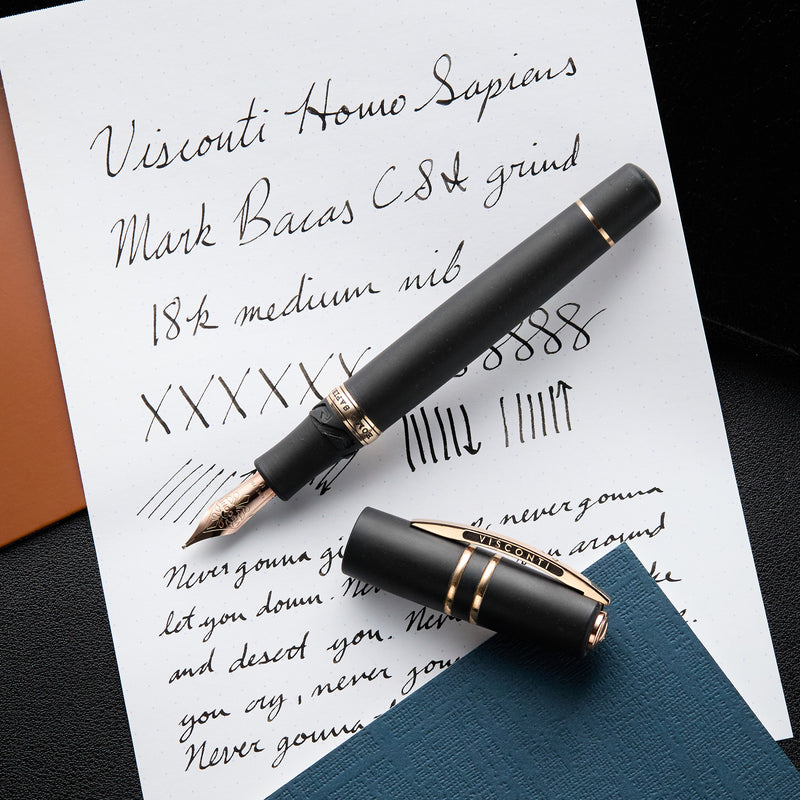 Visconti Homo Sapiens
Mark Bacas CSI grind
18k medium nib
XXXXXX 8888
Never gonna gi never gonna
let you down. Ne u around
and desert you. Nev ke
you cry, never gon
Never gonna
VISCONTI